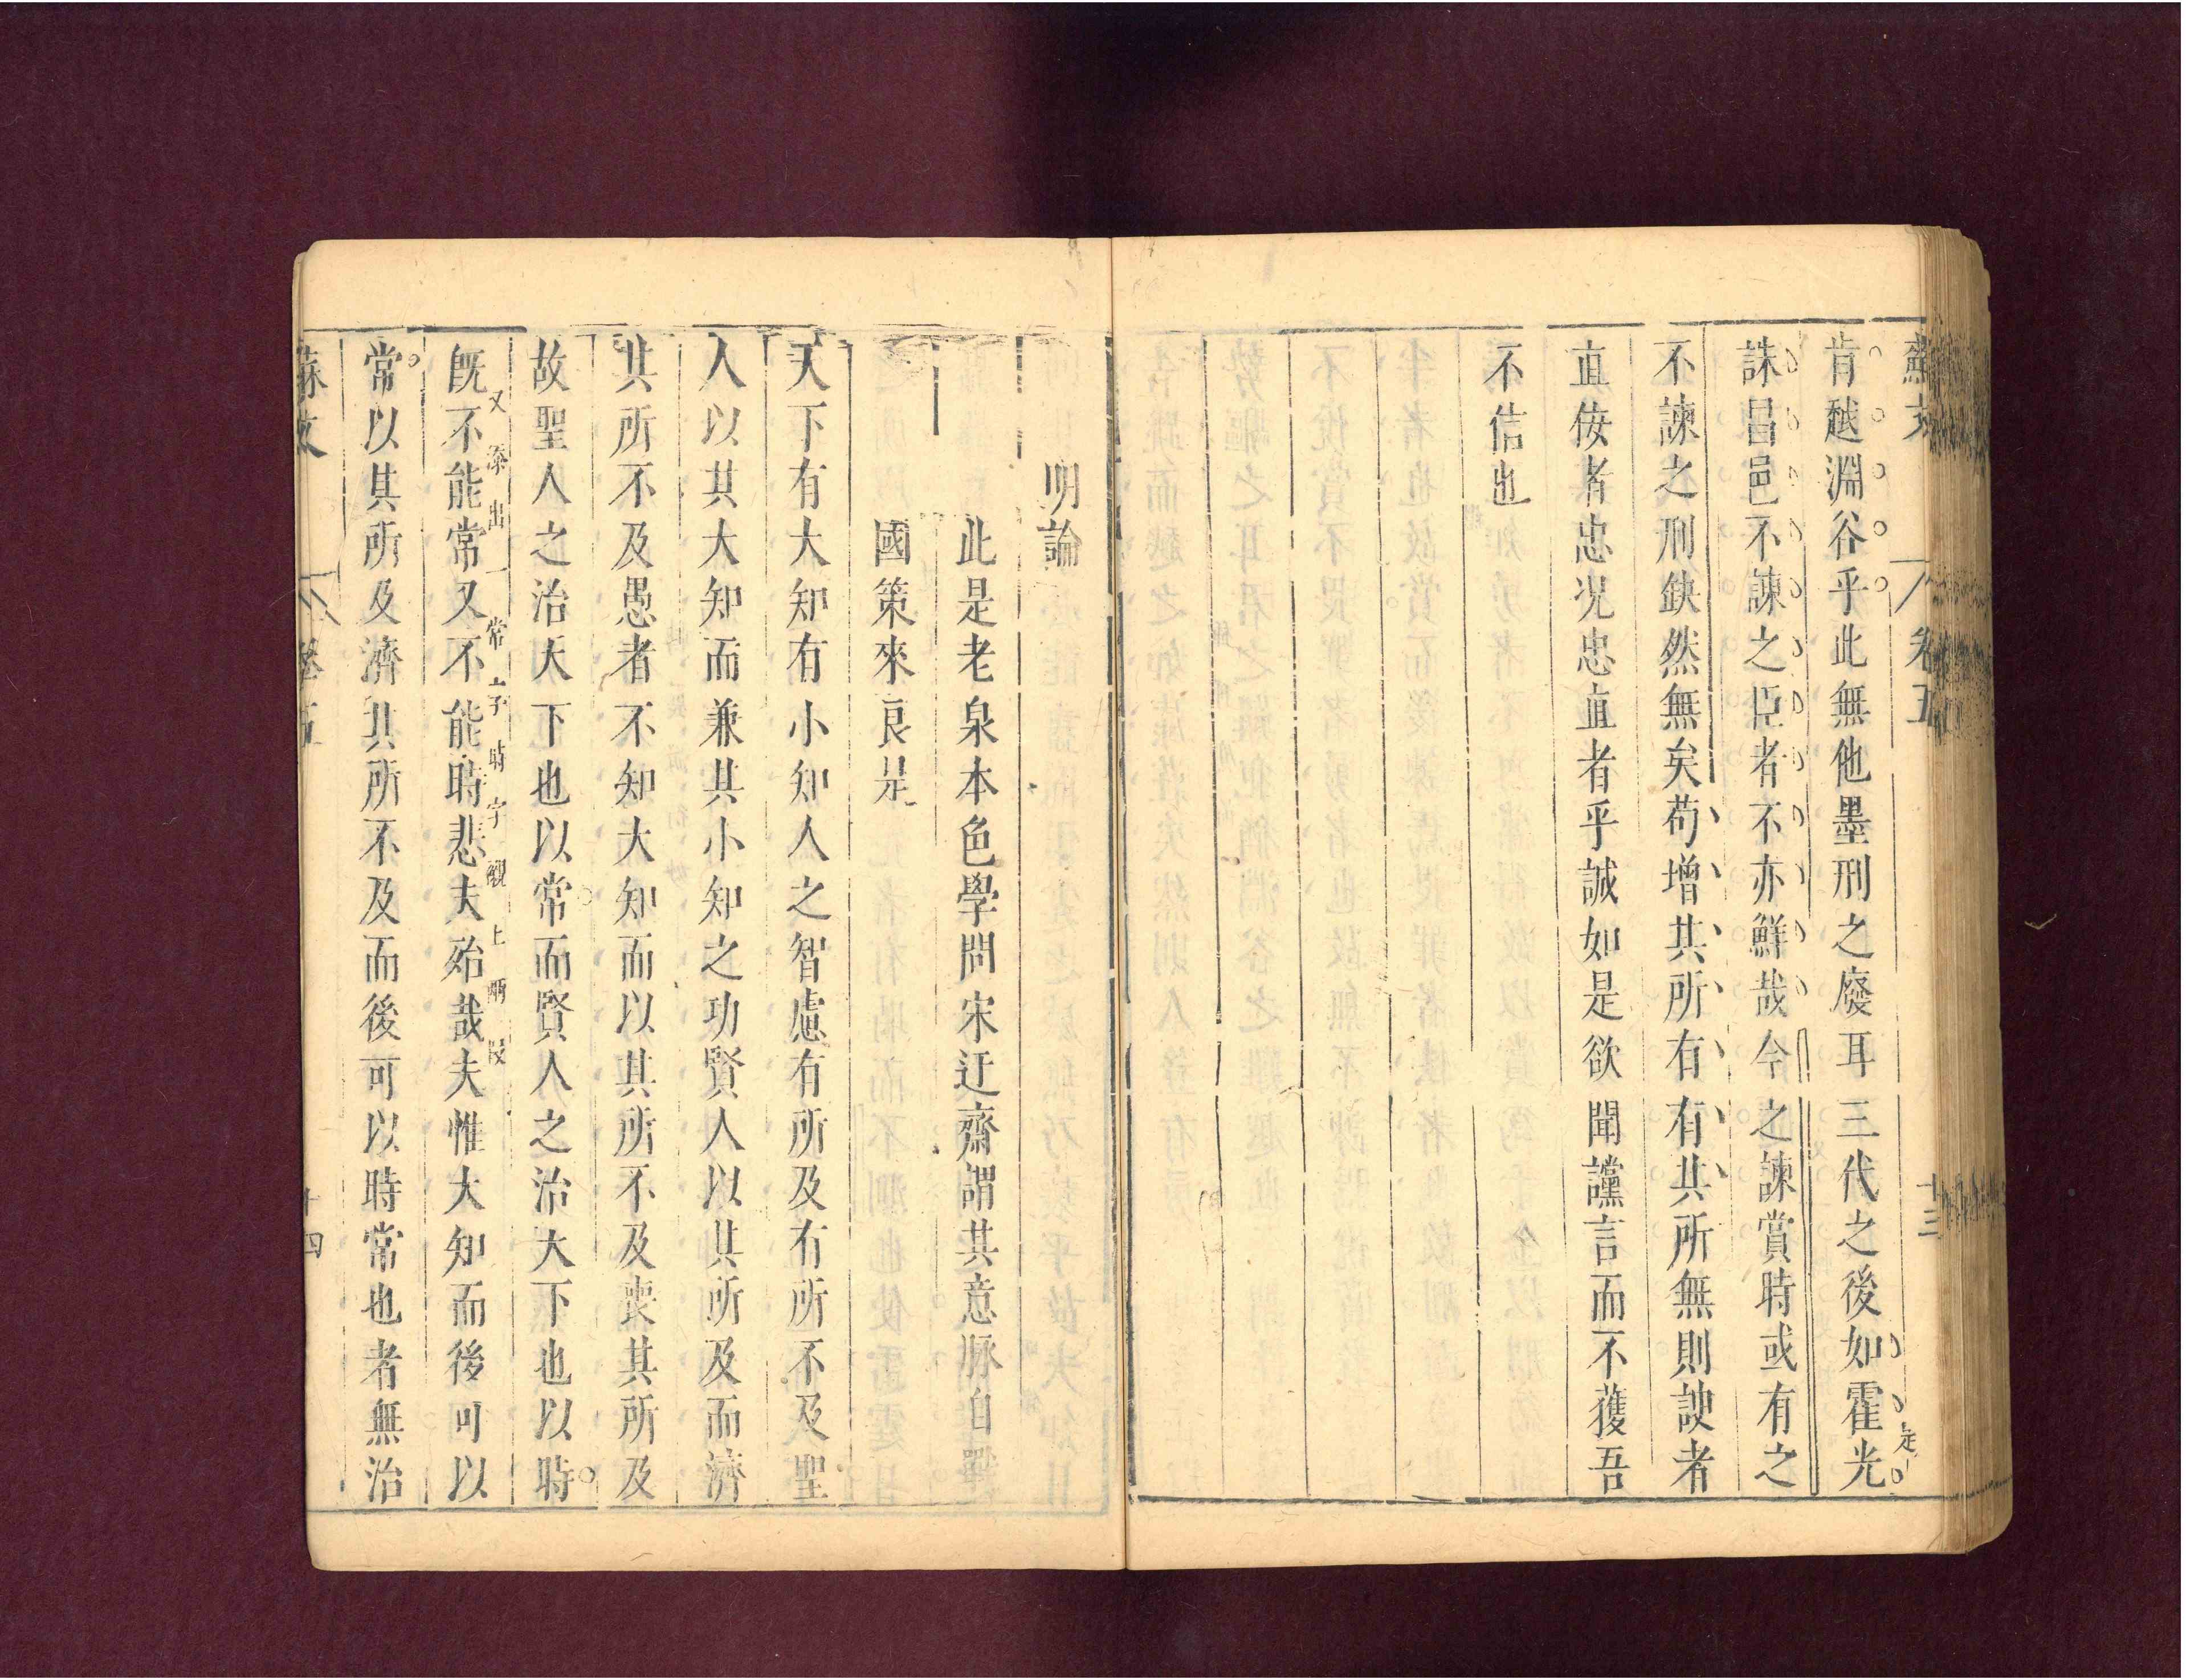 蘇文
卷五
十三
肯越淵谷乎此無他墨刑之廢耳三代之後如霍光
誅昌邑不諫之臣者不亦鮮哉今之諫賞時或有之
不諫之刑缺然無矣苟增其所有有其所無則諛者
直佞者忠況忠直者乎誠如是欲聞讜言而不獲吾
不信也
明論
此是老泉本色學問宋迂齋謂其意脉自
國策來良是
天下有大知有小知人之智慮有所及有所不及聖
人以其大知而兼其小知之功賢人以其所及而濟
其所不及愚者不知大知而以其所不及喪其所及
故聖人之治天下也以常而賢人之治天下也以時
又添出一常字時字襯上兩段
旣不能常又不能時悲夫殆哉夫惟大知而後可以
常以其所及濟其所不及而後可以時常也者無治
蘇文
卷五
十四